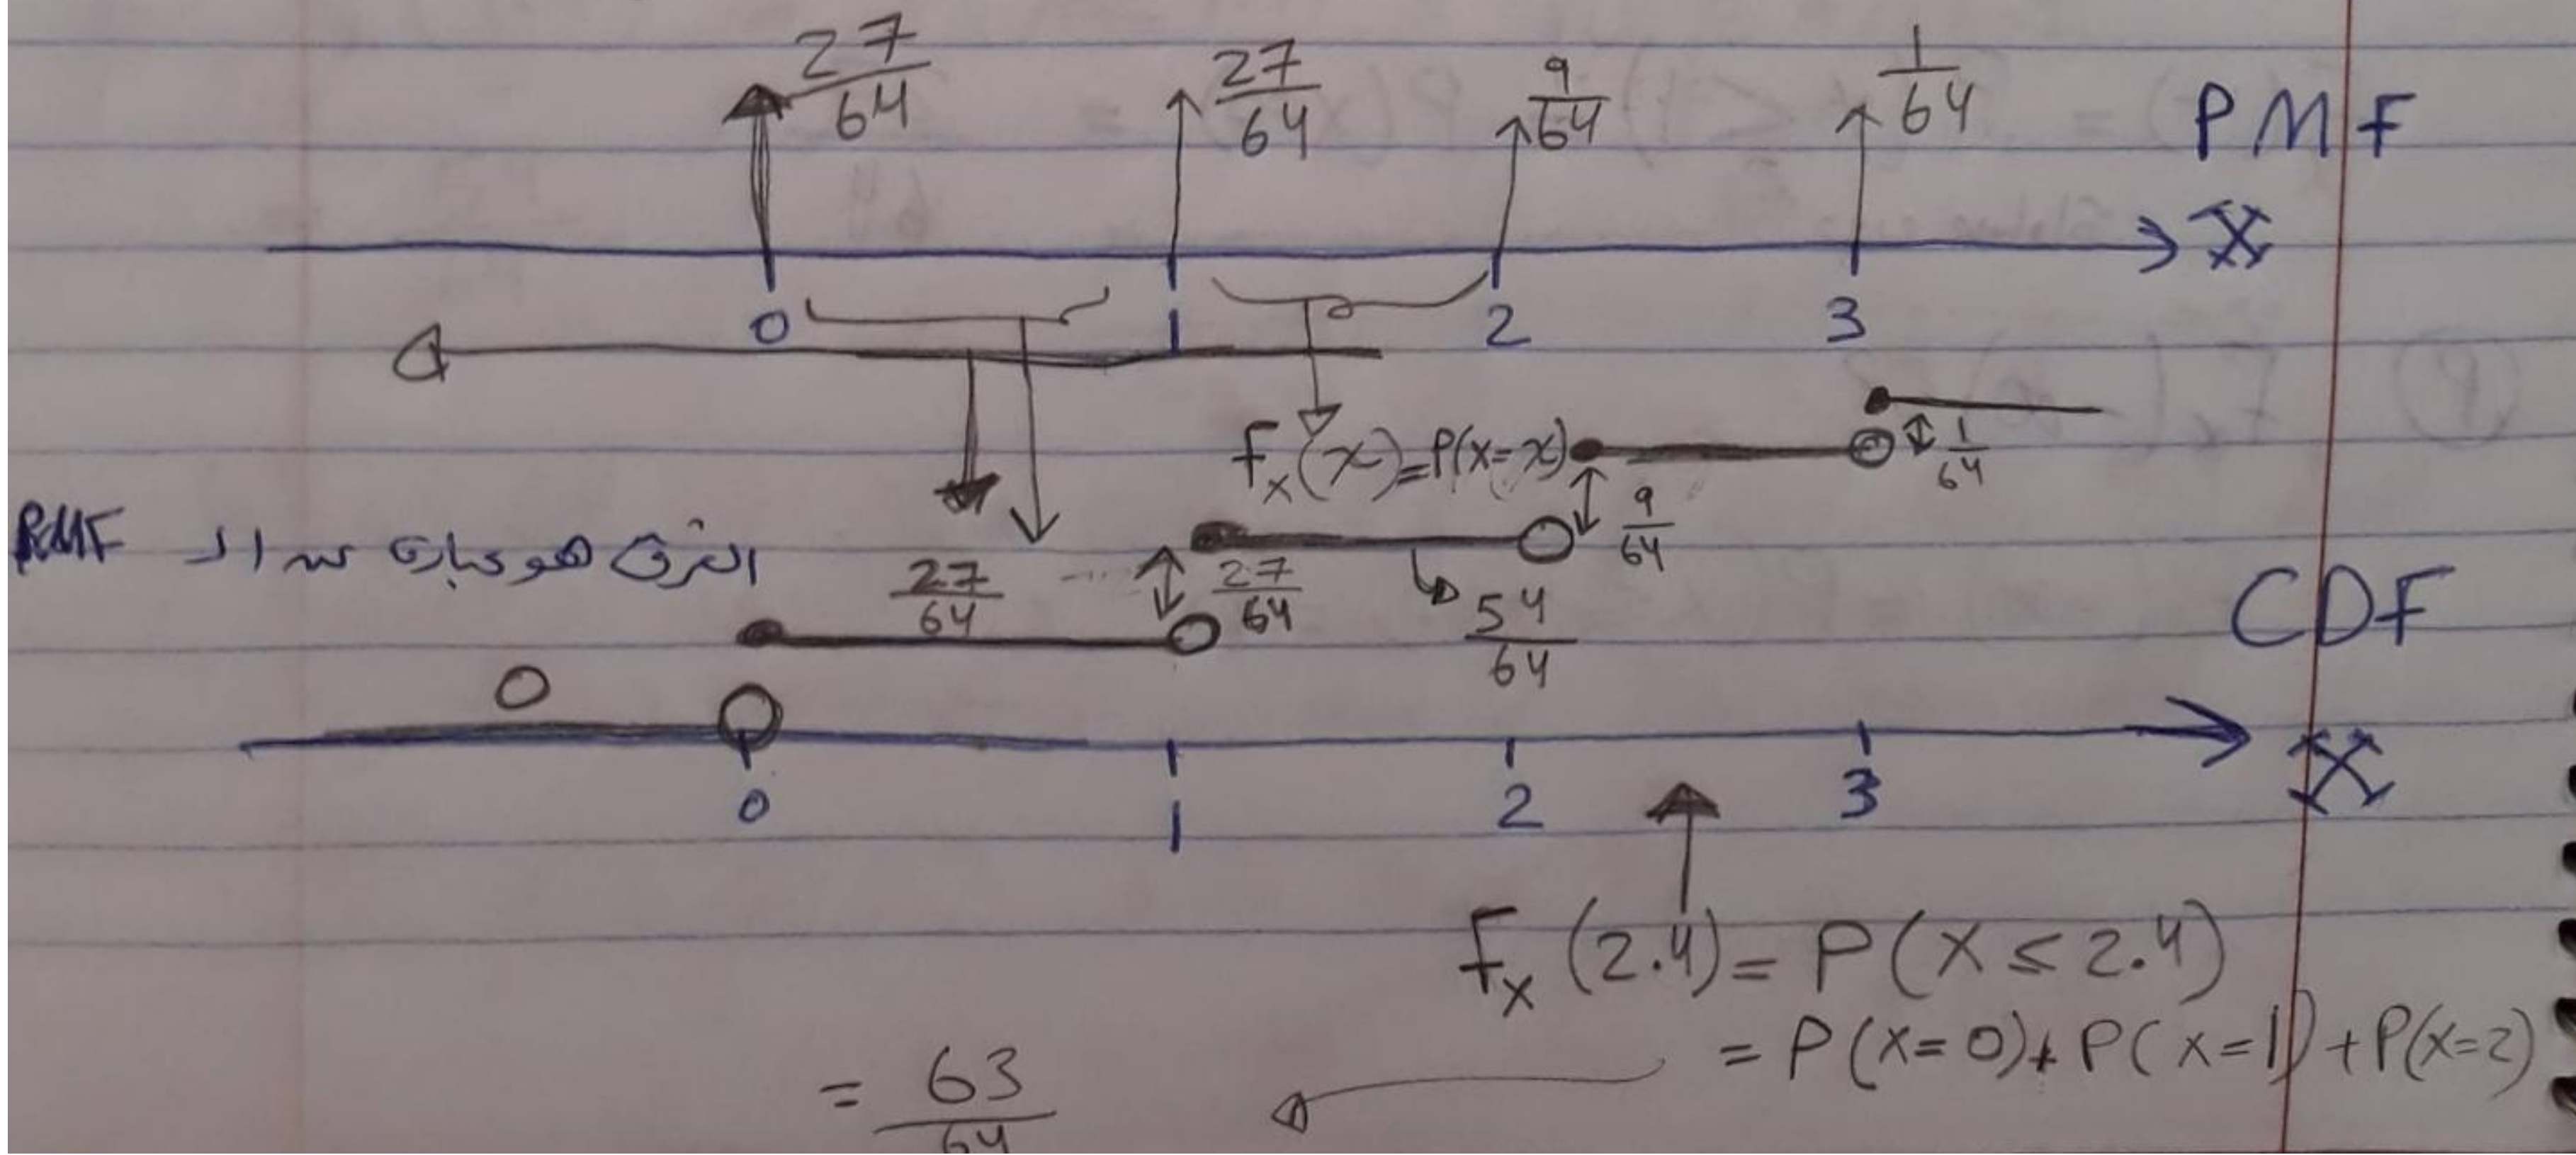 27/64 27/64 9/64 1/64 PMF
X
0 1 2 3
Fx(x)=P(x=x) 1/64
الفرق هو عبارة عن ال PMF
27/64 27/64 54/64 9/64
CDF
0
0 1 2 3 X
Fx(2.4)=P(X≤2.4)
=P(x=0)+P(x=1)+P(x=2)
=63/64